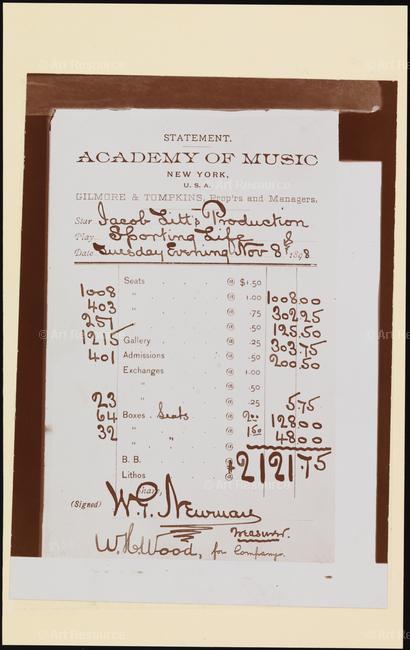 STATEMENT.
ACADEMY OF MUSIC
NEW YORK,
U. S. A.
GILMORE & TOMPKINS, Prop'rs and Managers.
Star Jacob Litt's Production
Play Sporting Life
Date Tuesday Evening Nov 8th 1898
Seats @ $1.50
1008 " @ 1.00 1008 00
403 " @ .75 302 25
251 " @ .50 125 50
1215 Gallery @ .25 303 75
401 Admissions @ .50 200 50
Exchanges @ 1.00
" @ .50
23 " @ .25 5 75
64 Boxes Seats @ 2.00 128 00
32 " " @ 1.50 48 00
B. B. @ $2121.75
Lithos @
Share,
(Signed) W. T. Newman
Treasurer.
W. H. Wood, for Company.
© Art Resource